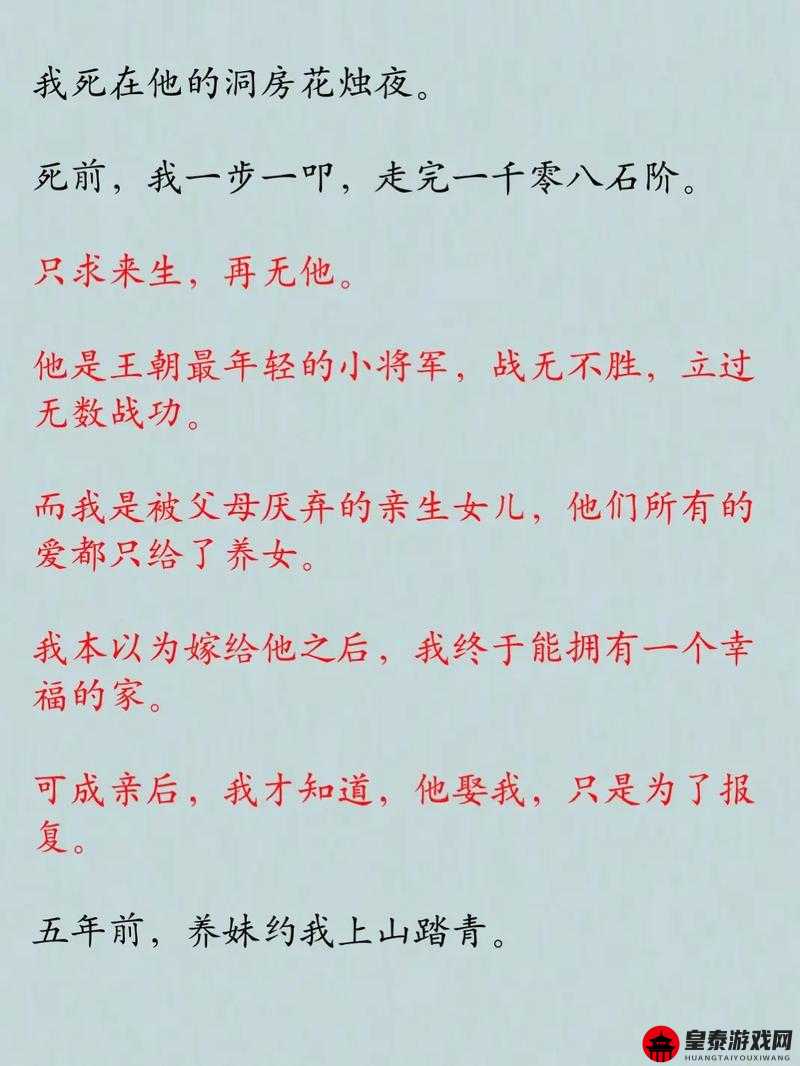 我死在他的洞房花烛夜。
死前，我一步一叩，走完一千零八石阶。
只求来生，再无他。
他是王朝最年轻的小将军，战无不胜，立过
无数战功。
而我是被父母厌弃的亲生女儿，他们所有的
爱都只给了养女。
我本以为嫁给他之后，我终于能拥有一个幸
福的家。
可成亲后，我才知道，他娶我，只是为了报
复。
五年前，养妹约我上山踏青。
皇泰游戏网
HUANGTAIYOUXIWANG